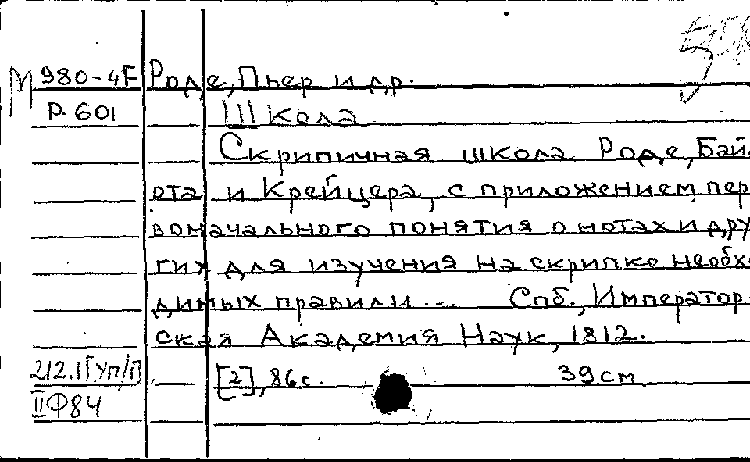 М 980-4F Роде, Пьер и др.
Р-601 Школа
Скрипичная школа Роде, Бай
ота и Крейцера, с приложением пер
воначального понятия о нотах и дру
гих для изучения на скрипке необхо
димых правили... Спб., Император
ская Академия Наук, 1812.
212.1[Уп/П] [2], 86с. 39см
IIФ84